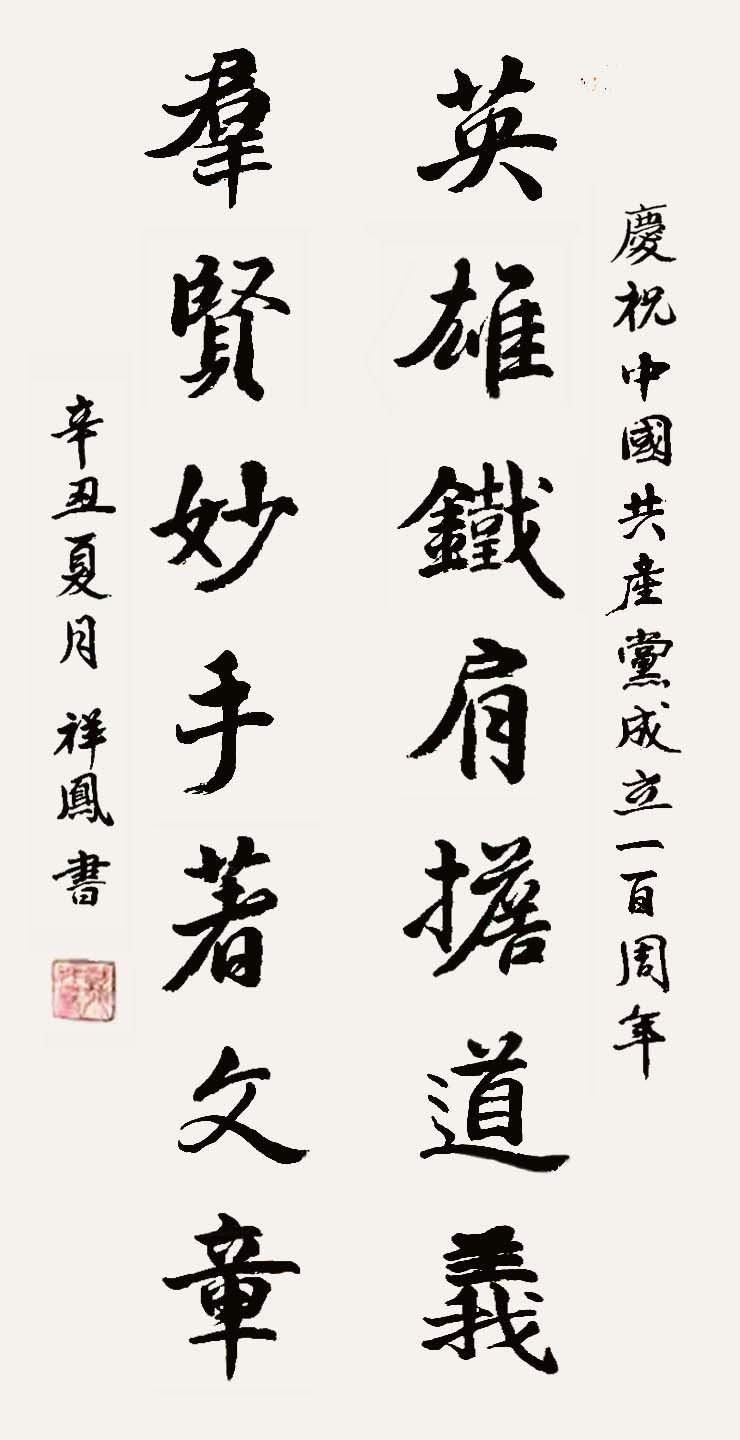 慶祝中國共產黨成立一百周年
英雄鐵肩擔道義
羣賢妙手著文章
辛丑夏月 祥鳳書